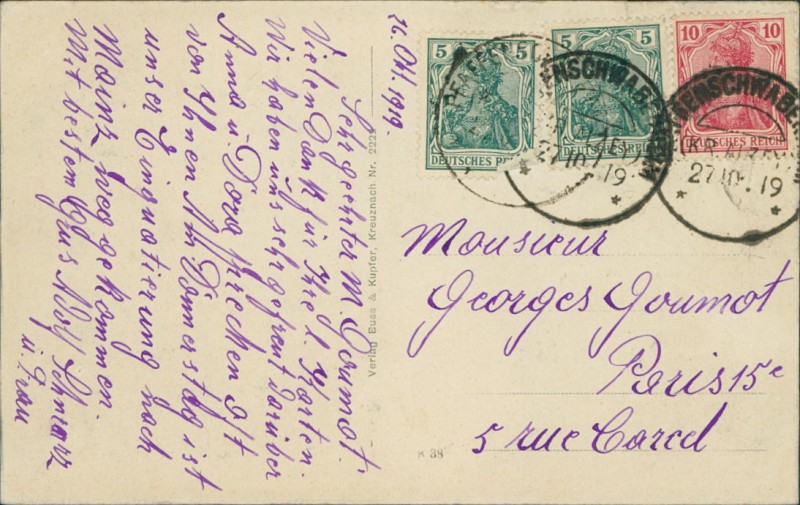 26. Okt. 1919.
Sehr geehrter M. Goumot.
Vielen Dank für Ihre l. Karten.
Wir haben uns sehr gefreut darüber
Anna u. Dora sprechen oft
von Ihnen Am Donnerstag ist
unser Einquatierung nach
Mainz
Mit bestem Grus Adolf Schwarz
u. Frau
Verlag Buss & Kupfer, Kreuznach Nr. 2222
5 5
DEUTSCHES REICH
5 5
10 10
DEUTSCHES REICH
27.10.19
27.10.19
Monsieur
Georges Goumot
Paris 15e
5 rue Carcel
K 38